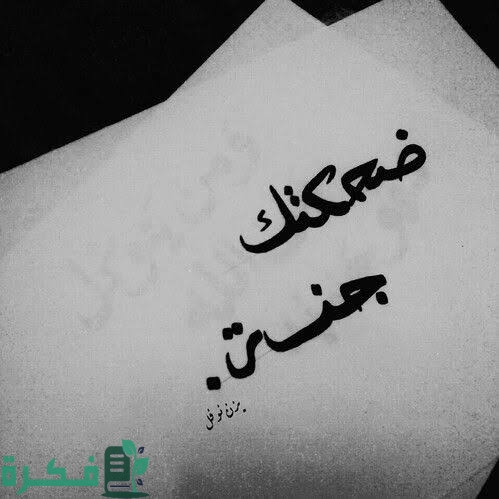 ضحكتك
جنة.
يزن نوفل
فكرة